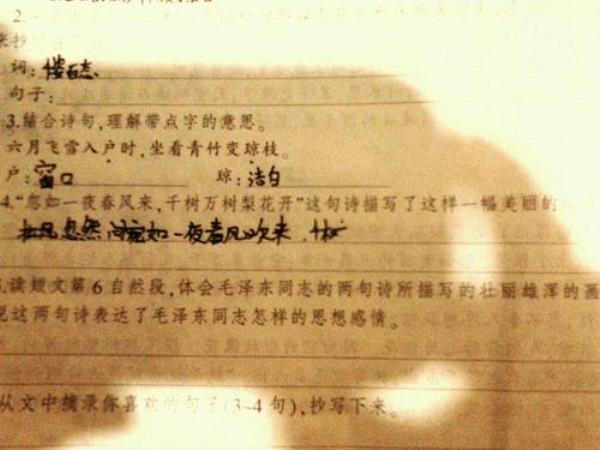 2.
来抄
词:
句子:
3.结合诗句,理解带点字的意思。
六月飞雪入户时,坐看青竹变琼枝。
户:窗口 琼:洁白
4."忽如一夜春风来,千树万树梨花开"这句诗描写了这样一幅美丽的
北风忽然间宛如一夜春风吹来,
.读短文第6自然段,体会毛泽东同志的两句诗所描写的壮丽雄浑的画
说这两句诗表达了毛泽东同志怎样的思想感情。
从文中摘录你喜欢的句子(3-4句),抄写下来。